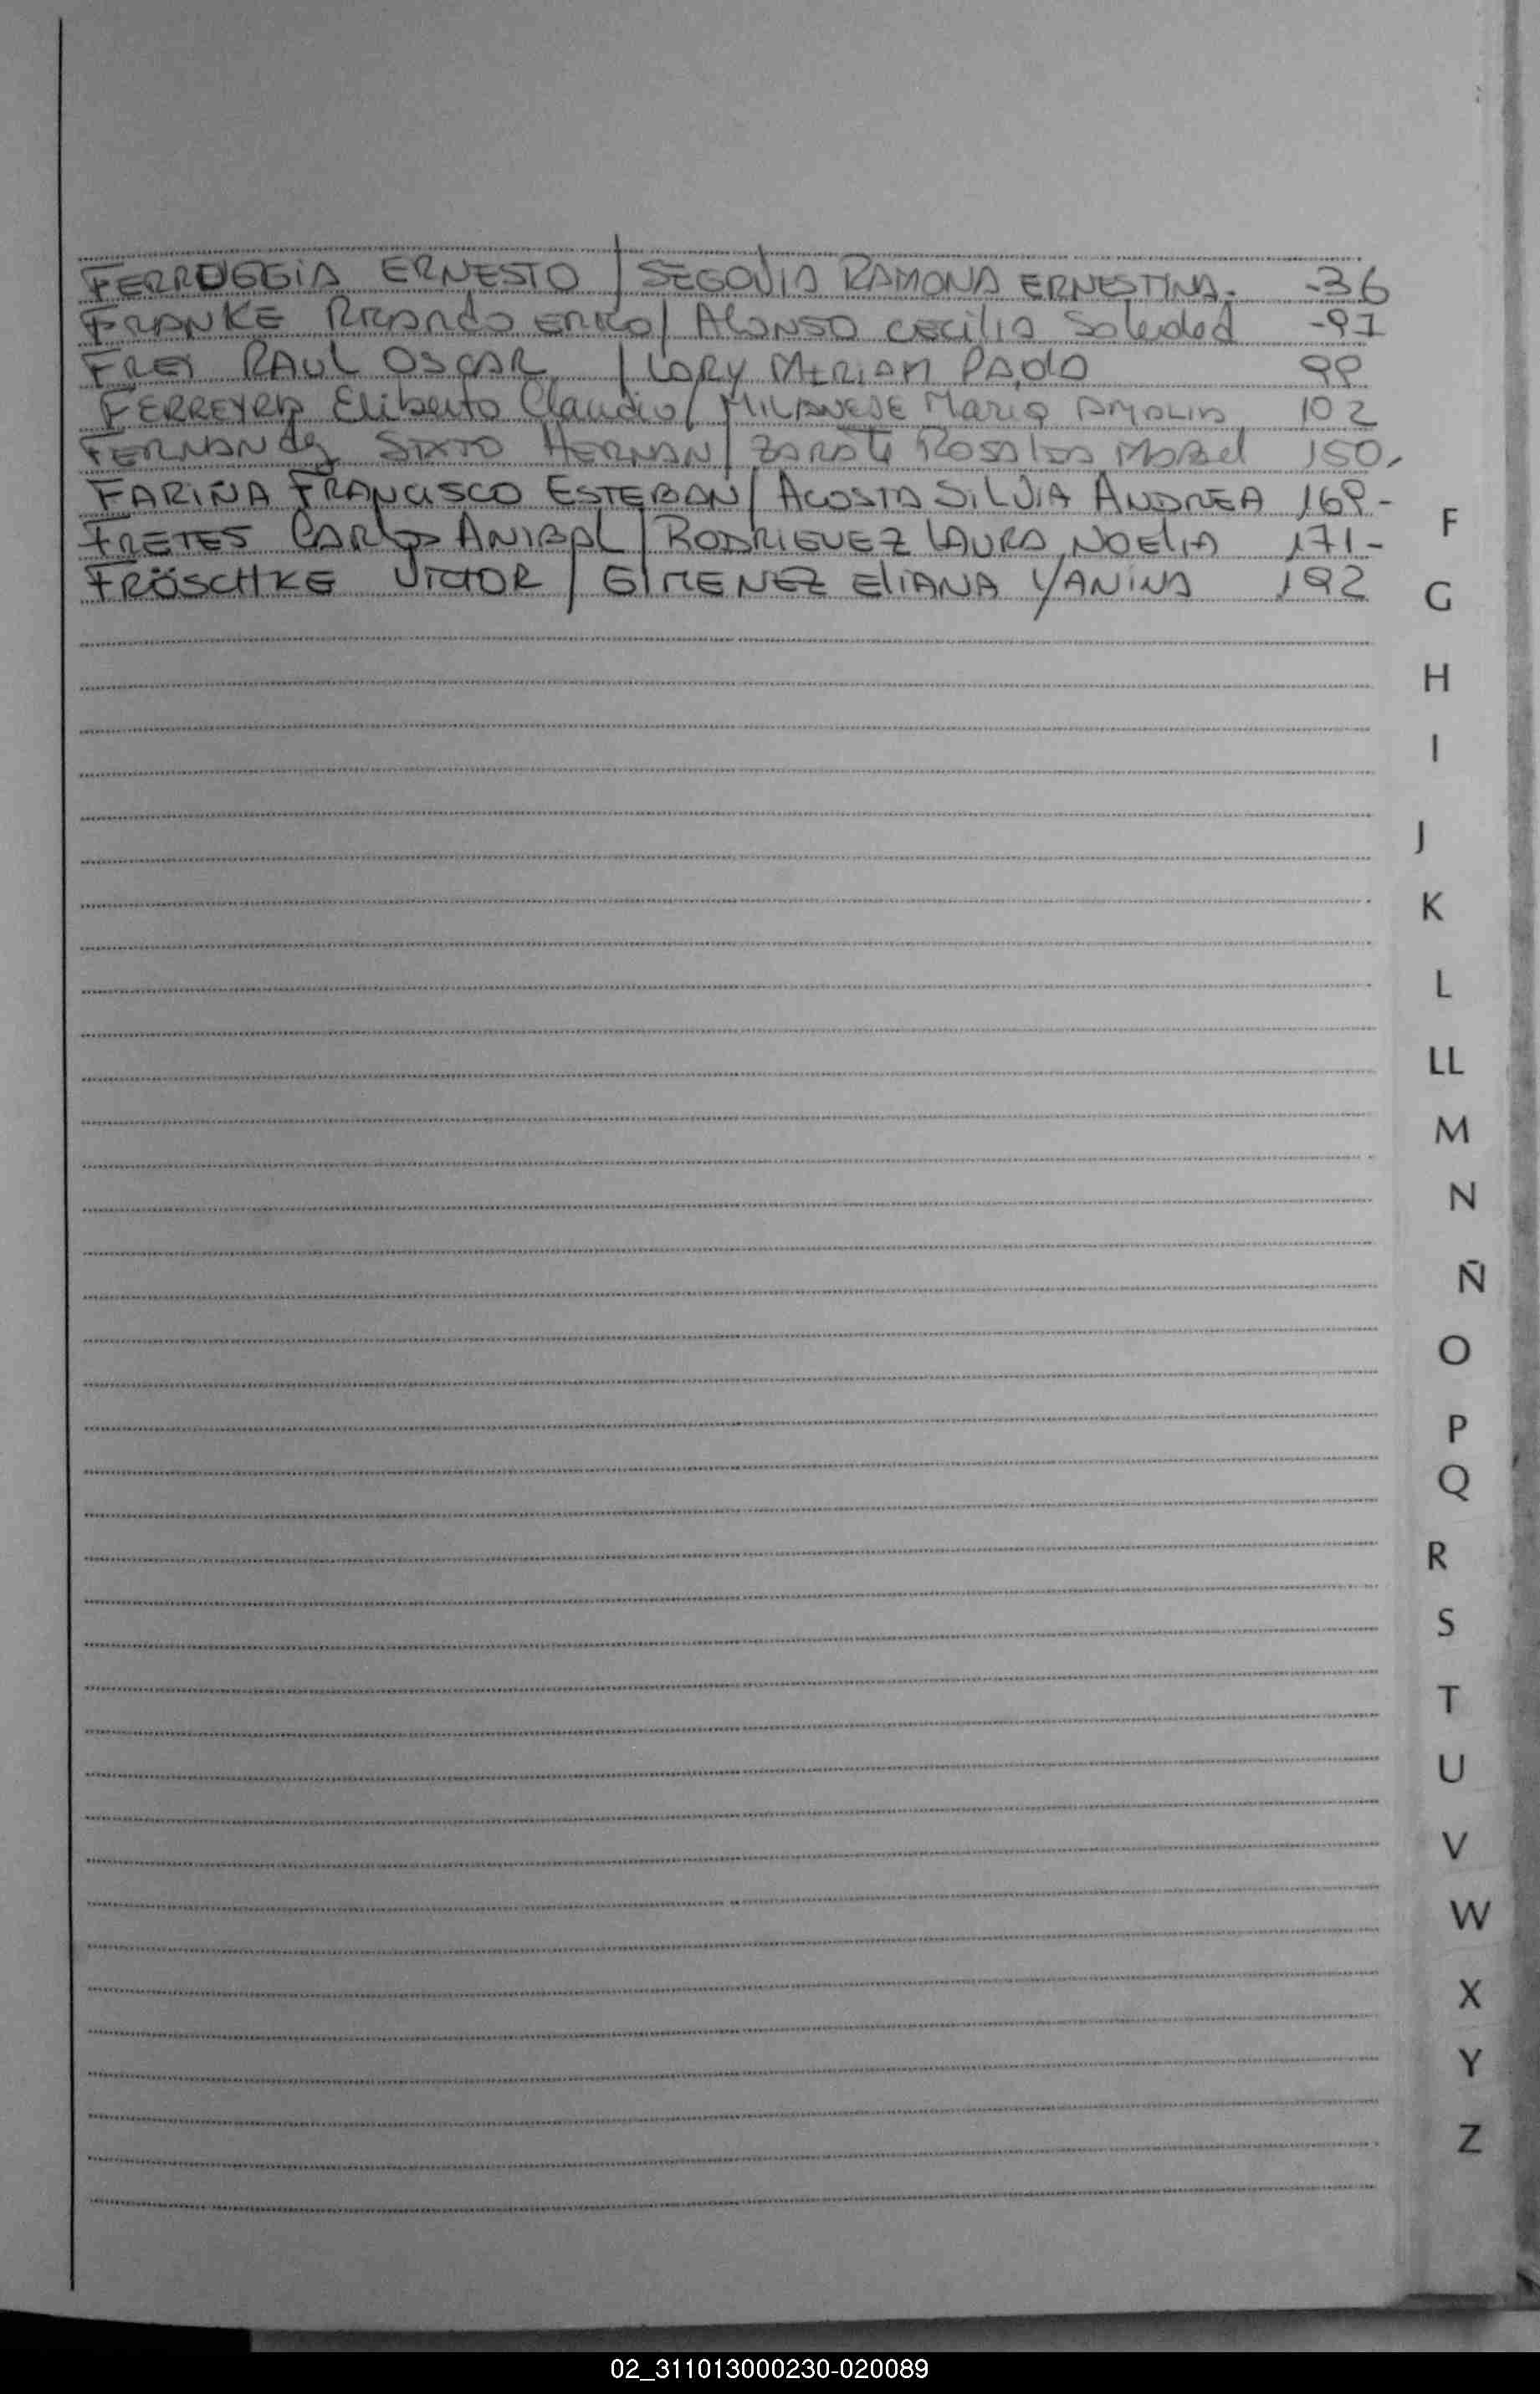 FERRUGGIA ERNESTO / SEGOVIA RAMONA ERNESTINA. -36
FRANKE Ricardo ERICO / Alonso CECiliA Soledad -97
FREI RAUL OSCAR / LORY MiRiAM PAOlA 99
FERREYRA Eliberto Claudio / MILANESE María AMALIA 102
FERNANdez SIXTO HERNAN / ZARATE Rosalba MABel 150.
FARIÑA FRANCISCO ESTEBAN / ACOSTA SiLViA ANDREA 169.-
FRETES CARlos ANIBAL / RODRIGUEZ LAURA NOEliA 171-
FRÖSCHKE VICTOR / GIMENEZ EliANA YANiNA 192
F
G
H
I
J
K
L
LL
M
N
Ñ
O
P
Q
R
S
T
U
V
W
X
Y
Z
02_311013000230-020089